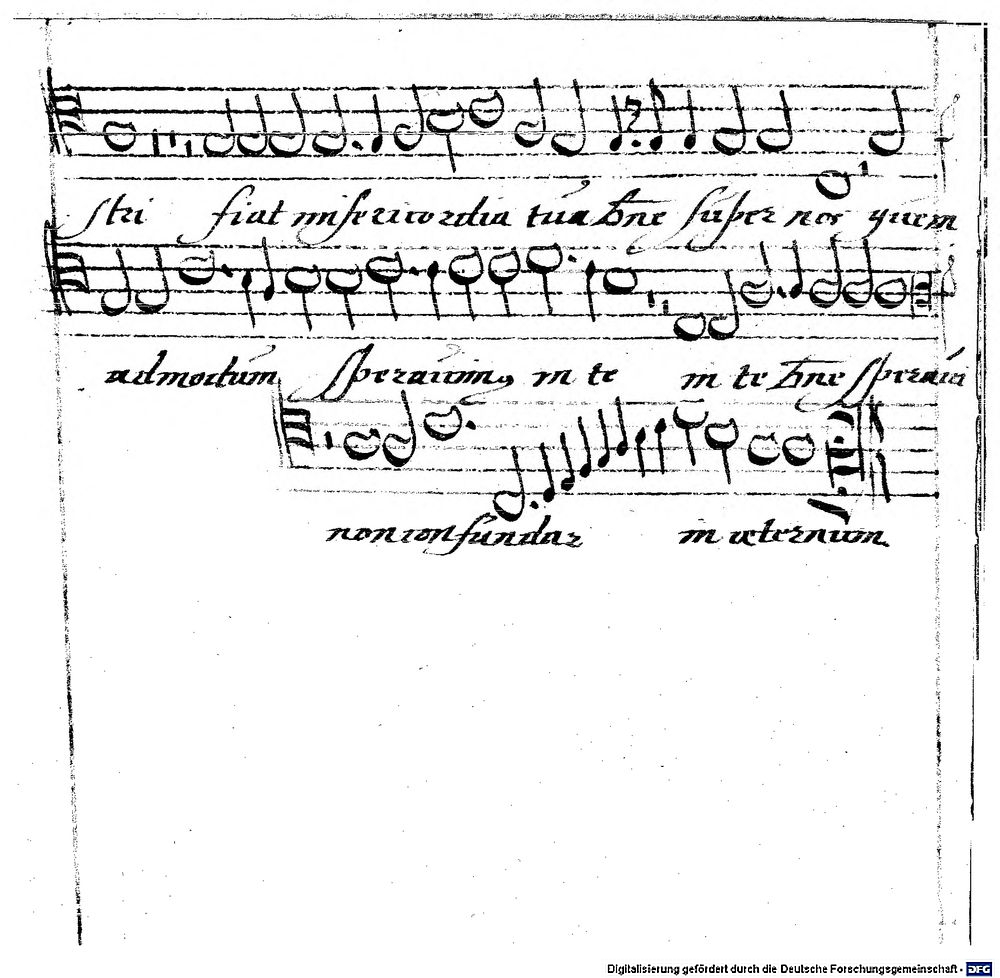 stri fiat misericordia tua dne super nos quem
admodum speravimus in te in te dne speravi
non confundar in æternum.
Digitalisierung gefördert durch die Deutsche Forschungsgemeinschaft - DFG